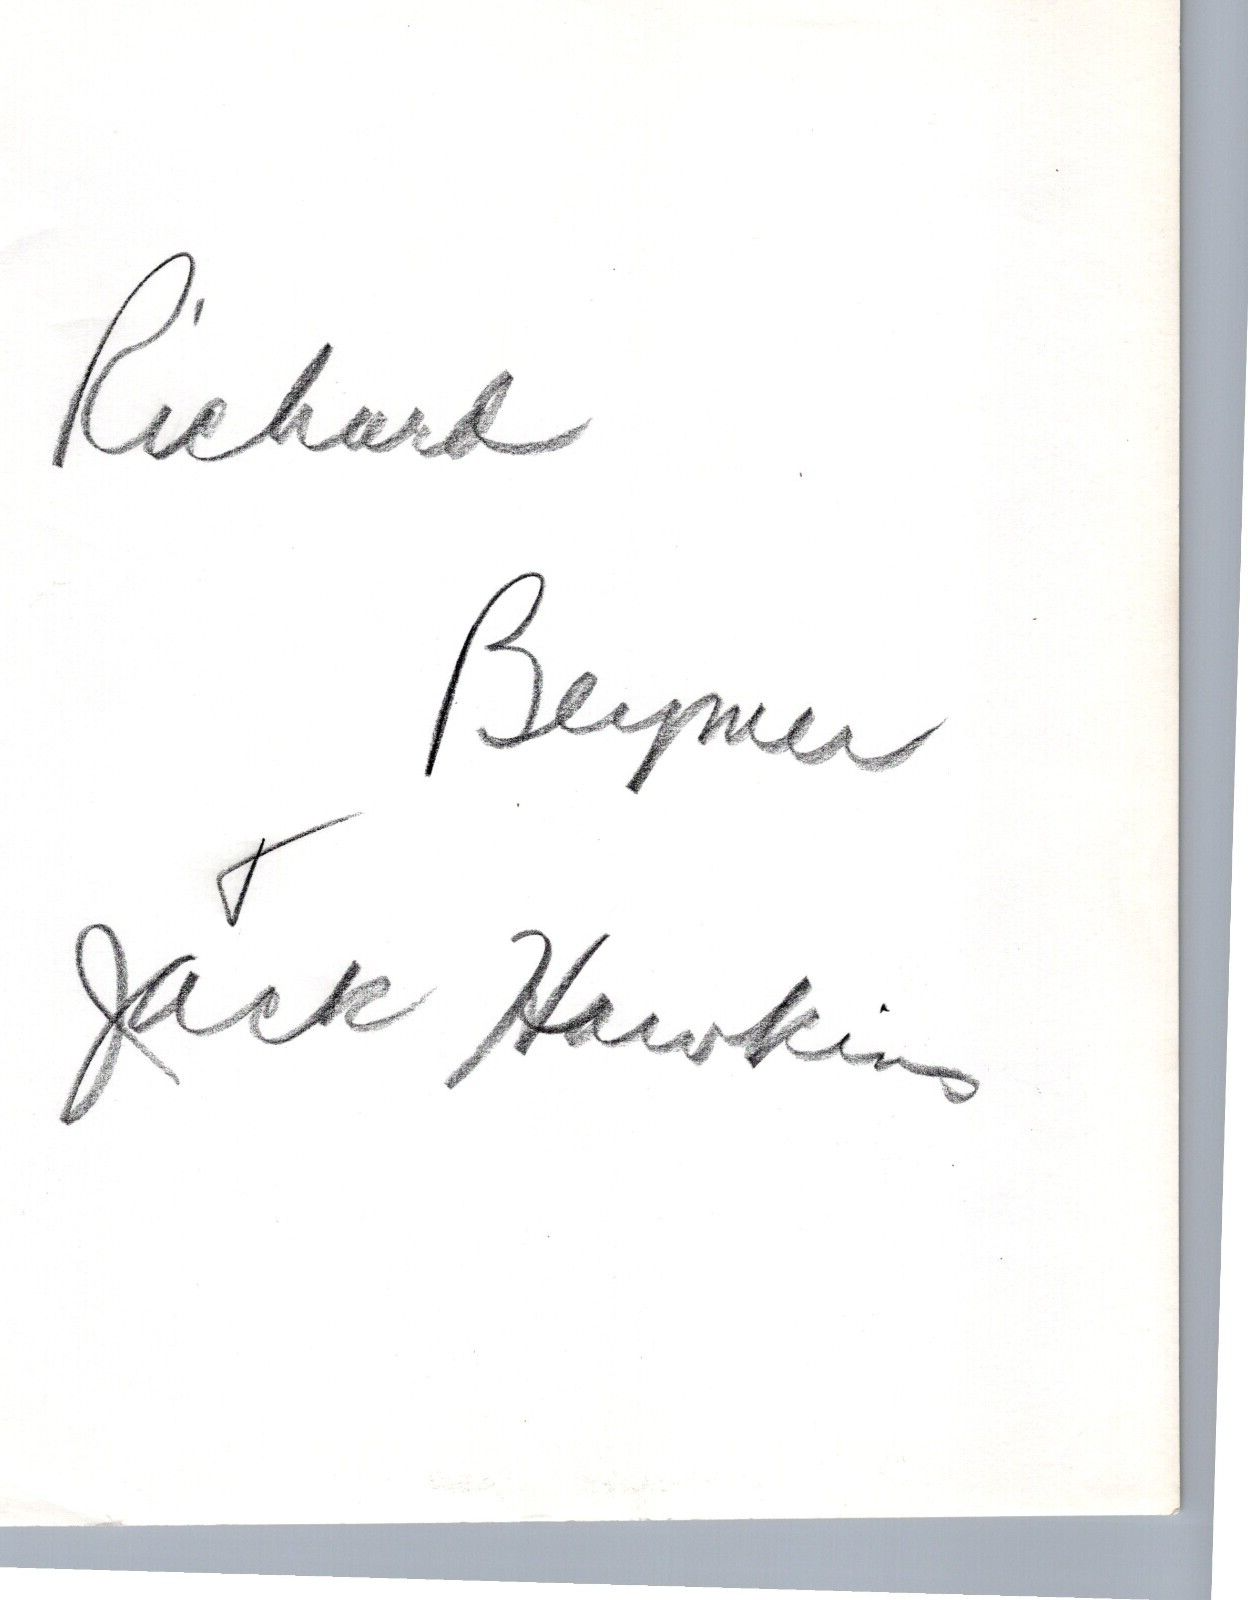 Richard
Beymer
+
Jack Hawkins